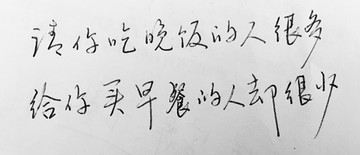 请你吃晚饭的人很多
给你买早餐的人却很少